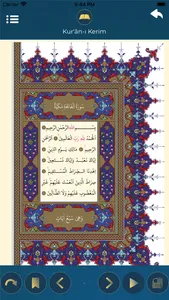 Kur'ân-ı Kerim
سورة الفاتحة مكية
بسم الله الرحمن الرحيم
الحمد لله رب العالمين الرحمن
الرحيم مالك يوم الدين
إياك نعبد وإياك نستعين اهدنا
الصراط المستقيم
صراط الذين أنعمت عليهم غير
المغضوب عليهم ولا الضالين
وهي سبع آيات